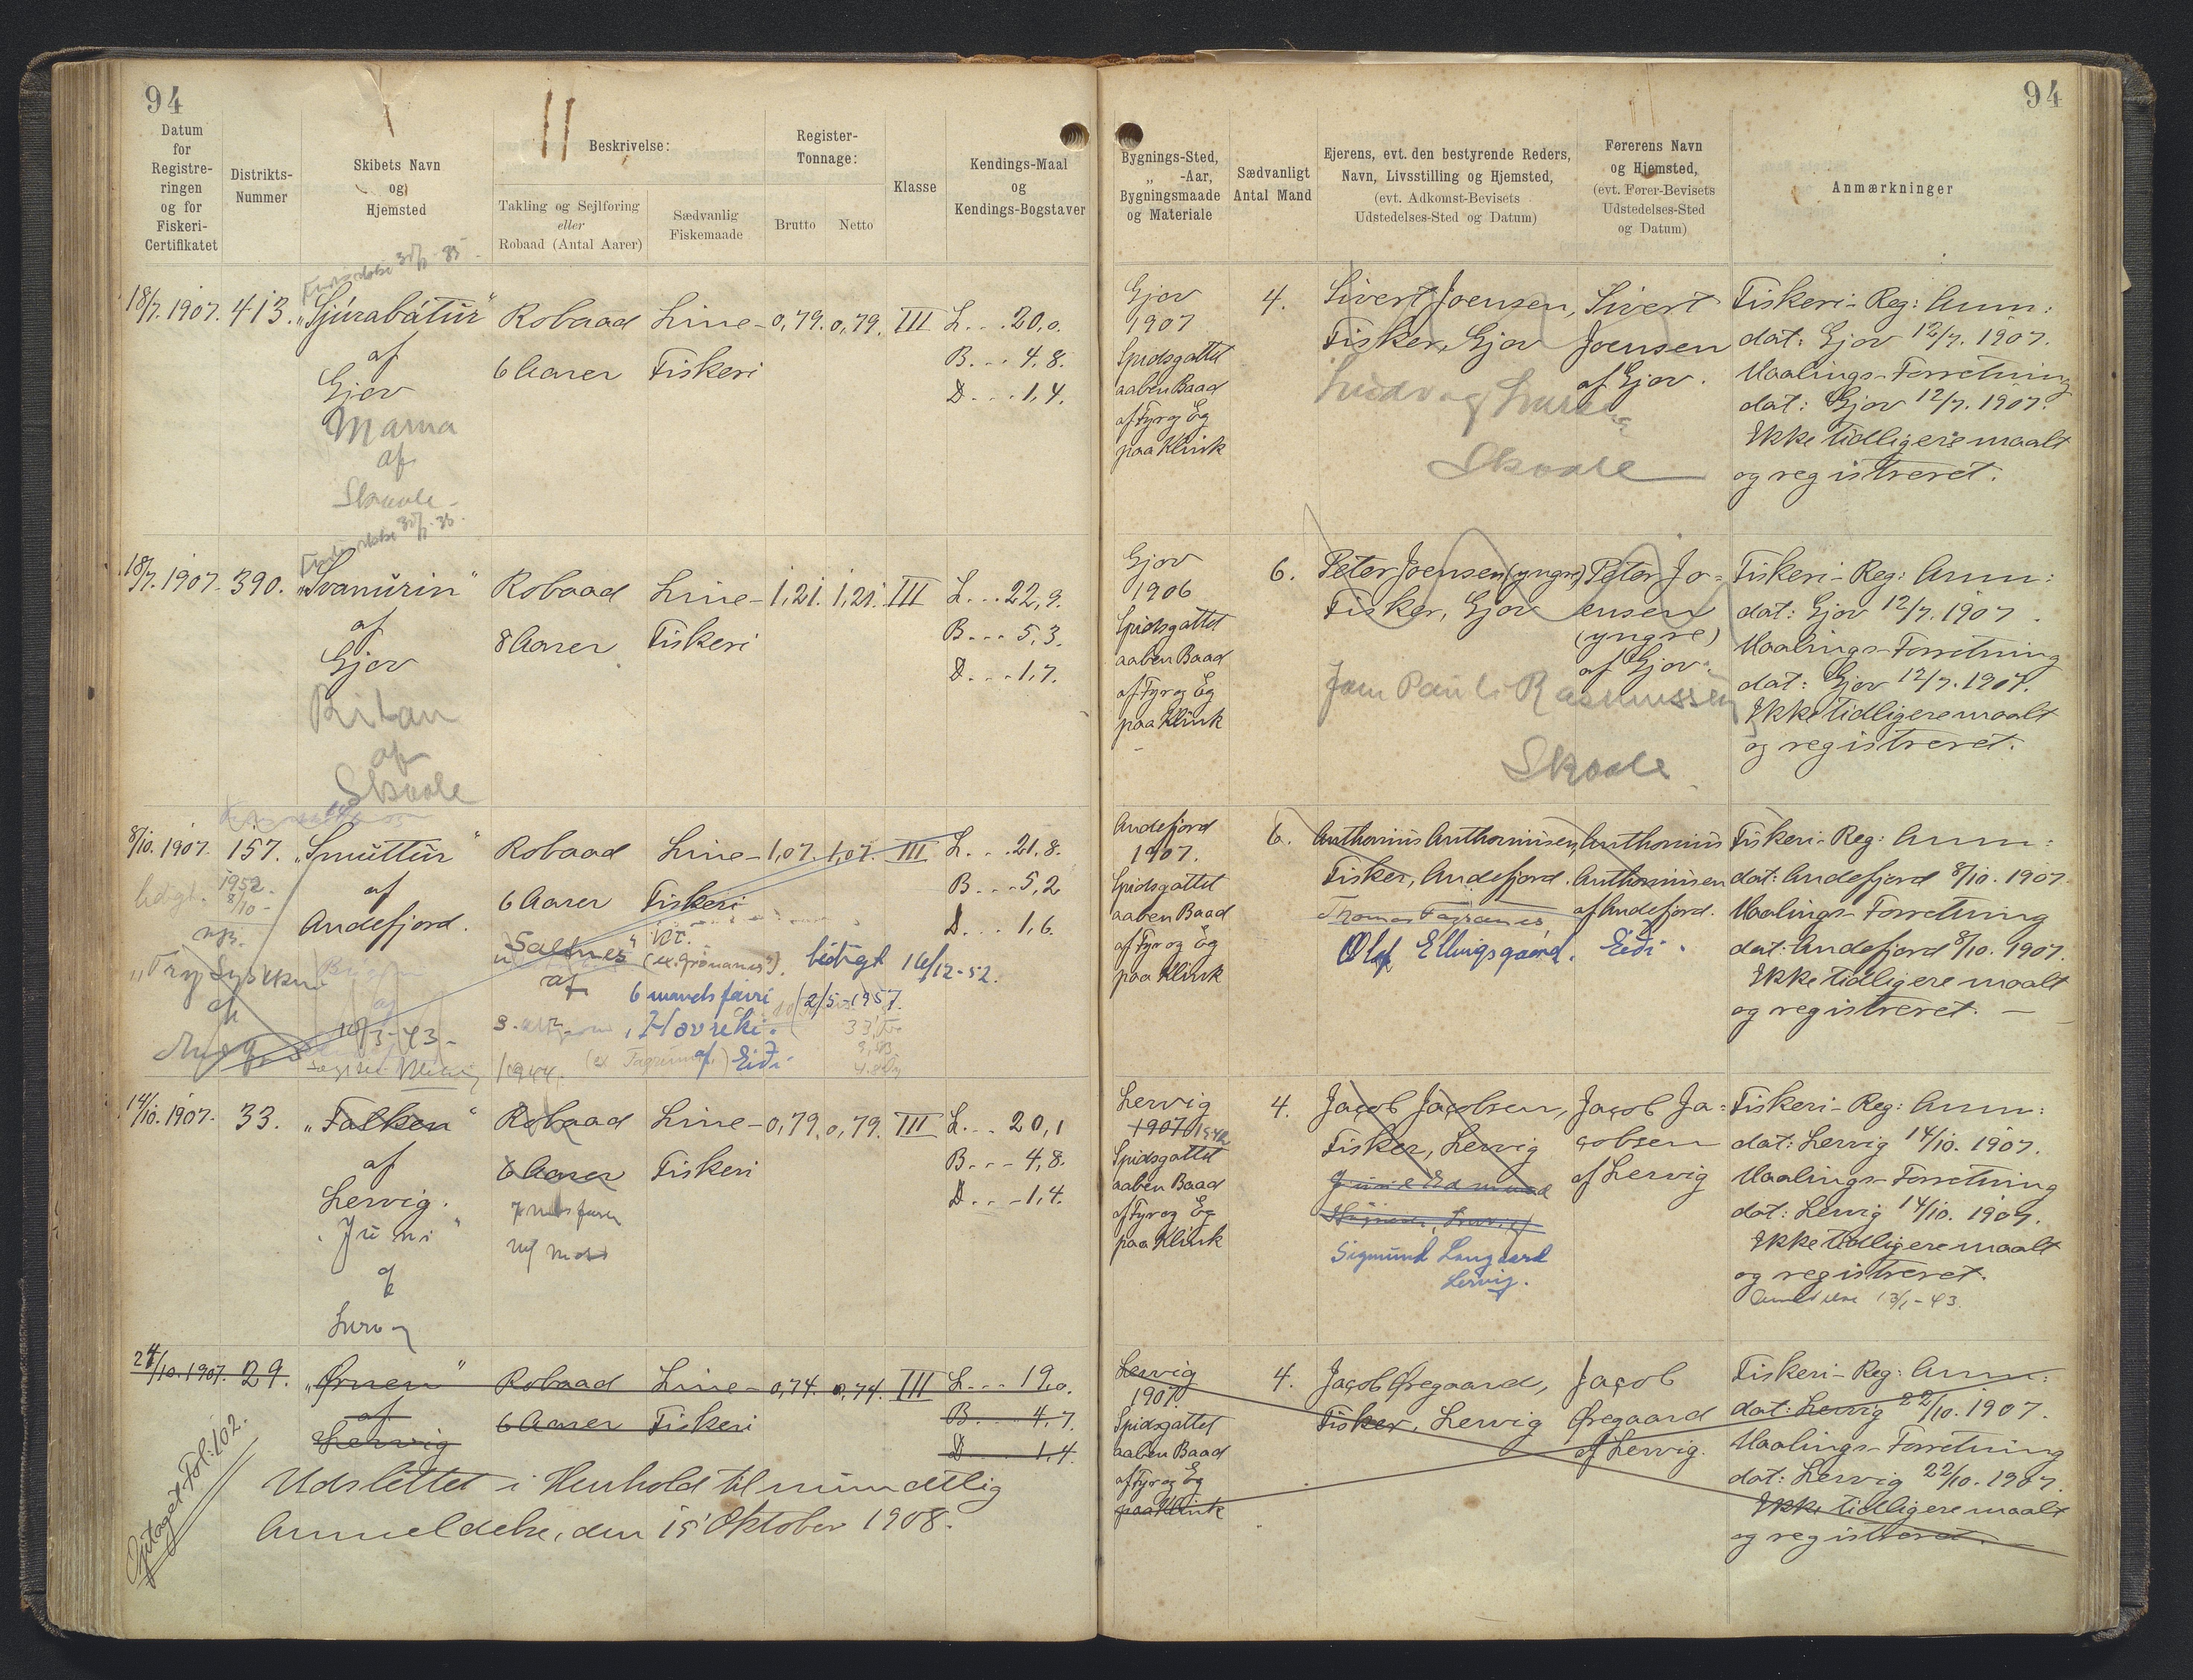 94
Datum
for
Registre-
ringen
og for
Fiskeri-
Certifikatet
Distrikts-
Nummer
Skibets Navn
og
Hjemsted
Beskrivelse:
Takling og Sejlføring
eller
Robaad (Antal Aarer)
Sædvanlig
Fiskemaade
Register-
Tonnage:
Brutto Netto
Klasse
Kendings-Maal
og
Kendings-Bogstaver
18/7. 1907. 413. „Sjúrabátur" Robaad Line- 0,79. 0,79. III L. . . 20,0.
af 6 Aarer Fiskeri B. . . 4,8.
Gjov D. . . 1,4.
Marna
af
Skaale
18/7. 1907. 390. „Svanurin" Robaad Line- 1,21. 1,21. III L. . . 22,9.
af 8 Aarer Fiskeri B. . . 5,3.
Gjov D. . . 1,7.
Ritan
af
Skaale
8/10. 1907. 157. „Smuttur" Robaad Line- 1,07. 1,07. III L. . . 21,8.
af 6 Aarer Fiskeri B. . . 5,2
Andefjord. D. . . 1,6.
1952
8/10
„Saltnes" (ex. Grønanes"). 16/12-52.
af 6 mands 2/5-1957.
„Havreki"
af Eiði
1944.
14/10. 1907. 33. „Falken" Robaad Line- 0,79. 0,79. III L. . . 20,1
af 6 Aarer Fiskeri B. . . 4,8.
Lervig. D. . . 1,4.
„Juni"
af
24/10. 1907. 29. „Ørnen" Robaad Line- 0,74. 0,74. III L. . . 19,0.
af 6 Aarer Fiskeri B. . . 4,7.
Lervig D. . . 1,4.
Udslettet i Henhold til mundtlig
Anmeldelse, den 15 Oktober 1908.
Optaget Fol: 102.
94
Bygnings-Sted,
„ -Aar,
Bygningsmaade
og Materiale
Sædvanligt
Antal Mand
Ejerens, evt. den bestyrende Reders,
Navn, Livsstilling og Hjemsted,
(evt. Adkomst-Bevisets
Udstedelses-Sted og Datum)
Førerens Navn
og Hjemsted,
(evt. Fører-Bevisets
Udstedelses-Sted
og Datum)
Anmærkninger
Gjov 4. Sivert Joensen, Sivert Fiskeri-Reg: Anm:
1907 Fisker, Gjov Joensen dat: Gjov 12/7. 1907.
Spidsgattet af Gjov. Maalings-Forretning
aaben Baad dat: Gjov 12/7. 1907.
af Fyr og Eg Ikke tidligere maalt
paa Klink Skaale og registreret.
Gjov 6. Peter Joensen (yngre) Peter Jo- Fiskeri-Reg: Anm:
1906 Fisker, Gjov ensen dat: Gjov 12/7. 1907.
Spidsgattet (yngre) Maalings-Forretning
aaben Baad af Gjov. dat: Gjov 12/7. 1907.
af Fyr og Eg Pauli Rasmussen Ikke tidligere maalt
paa Klink Skaale og registreret.
Andefjord 6. Anthonius Anthoniusen, Anthonius Fiskeri-Reg: Anm:
1907. Fisker, Andefjord. Anthoniusen dat: Andefjord 8/10. 1907.
Spidsgattet af Andefjord. Maalings-Forretning
aaben Baad Olaf Ellingsgaard. Eiði. dat: Andefjord 8/10. 1907.
af Fyr og Eg Ikke tidligere maalt
paa Klink og registreret. —
Lervig 4. Jacob Jacobsen, Jacob Ja- Fiskeri-Reg: Anm:
1907 Fisker, Lervig cobsen dat: Lervig 14/10. 1907.
Spidsgattet af Lervig Maalings-Forretning
aaben Baad dat: Lervig 14/10. 1907.
af Fyr og Eg Ikke tidligere maalt
paa Klink og registreret.
Sigmund Langgaard
Lervig.
Lervig 4. Jacob Øregaard, Jacob Fiskeri-Reg: Anm:
1907. Fisker, Lervig Øregaard dat: Lervig 22/10. 1907.
Spidsgattet af Lervig. Maalings-Forretning
aaben Baad dat: Lervig 22/10. 1907.
af Fyr og Eg Ikke tidligere maalt
paa Klink og registreret.